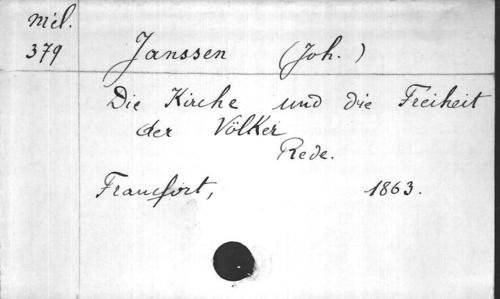 Mél.
379
Janssen (Joh.)
Die Kirche und die Freiheit
der Völker
Rede.
Francfort, 1863.